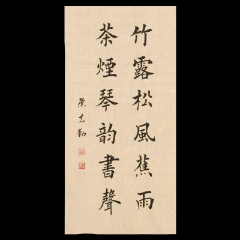 竹露松風蕉雨
茶煙琴韵書聲